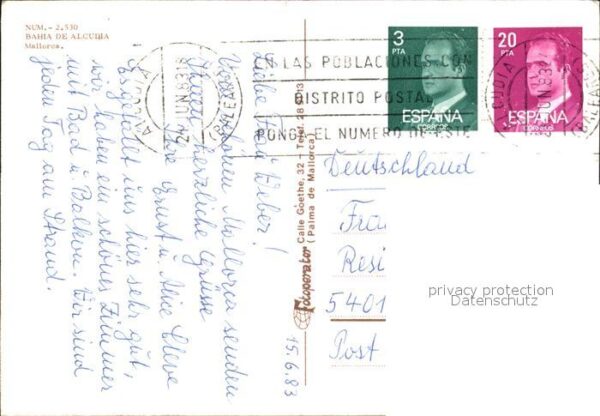 NUM. - 2,530
BAHIA DE ALCUDIA
Mallorca.
Liebe Frau Weber!
Vom schönen Mallorca senden
Ihnen herzliche Grüsse
Ihre Ernst u. Alice Cleve
Es gefällt uns hier sehr gut,
wir haben ein schönes Zimmer
mit Bad u. Balkon. Wir sind
jeden Tag am Strand.
15.6.83
Fotoperator Calle Goethe, 32 - Telef. 28
(Palma de Mallorca)
EN LAS POBLACIONES CON
DISTRITO POSTAL
PONGA EL NUMERO DE ESTE
3
PTA
ESPAÑA
CORREOS
20
PTA
ESPAÑA
CORREOS
Deutschland
Fra
Resi
5401
Post
privacy protection
Datenschutz